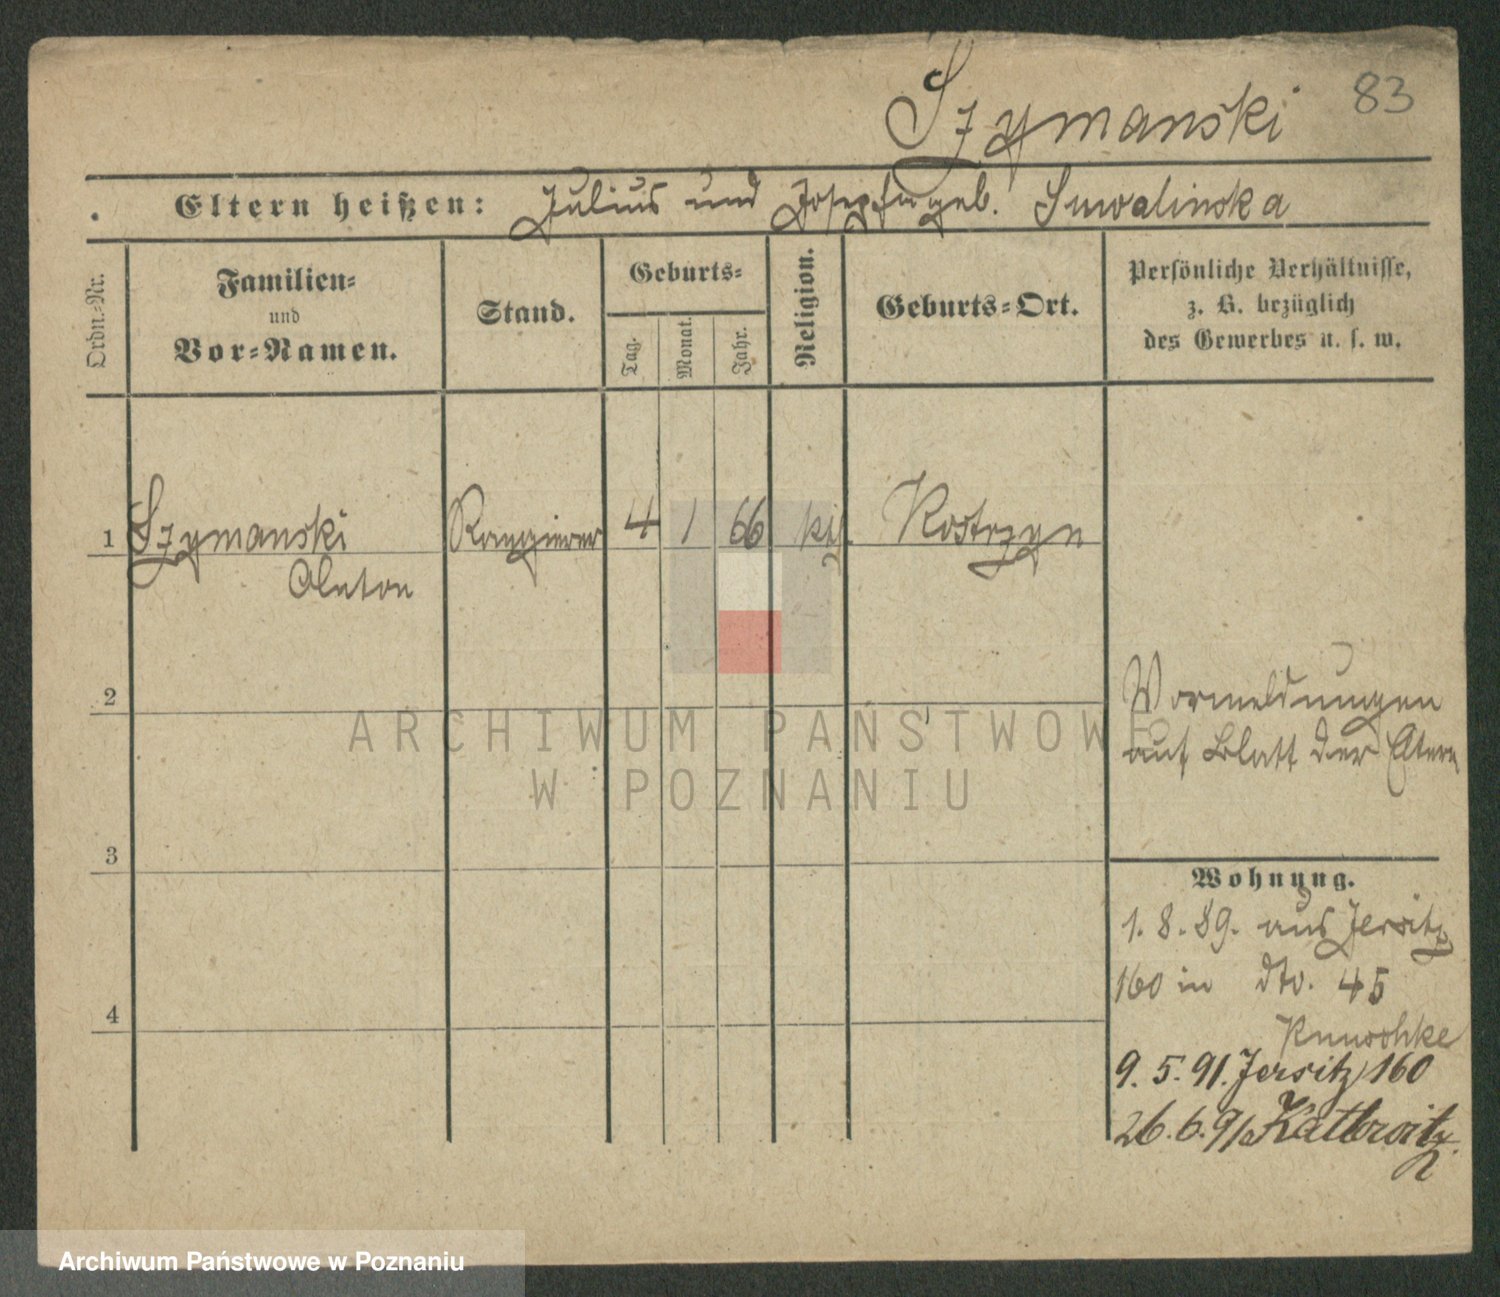 Szymanski 83
Eltern heißen: Julius und Josepha geb. Suwalinska
Ordn.-Nr.
Familien-
und
Vor-Namen.
Stand.
Geburts-
Tag.
Monat.
Jahr.
Religion.
Geburts-Ort.
Persönliche Verhältnisse,
z. B. bezüglich
des Gewerbes u. s. w.
1 Szymanski Rangierer 4 1 66 kth. Kostrzyn
Anton
2
Vormeldungen
auf Blatt der Eltern
3
Wohnung.
1. 8. 89. aus Jersitz
160 in dto. 45
4
9. 5. 91. Jersitz 160
26. 6. 91 Kattowitz.
ARCHIWUM PAŃSTWOWE
W POZNANIU
Archiwum Państwowe w Poznaniu